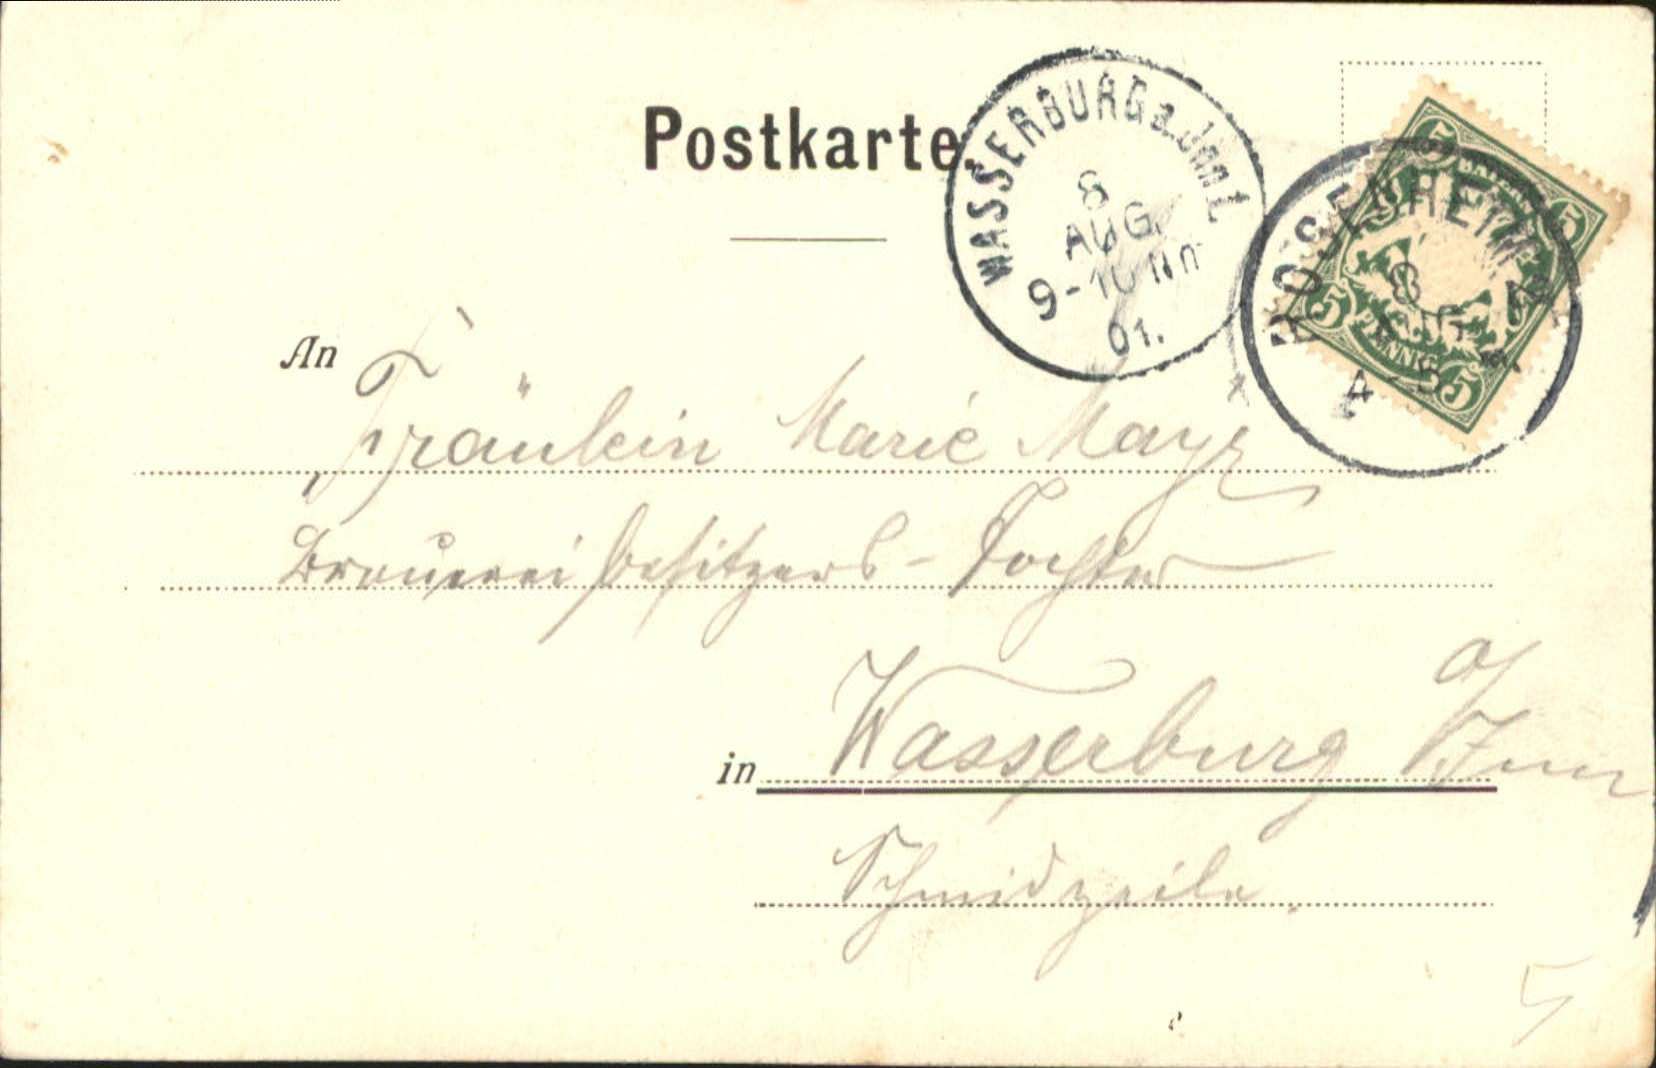 Postkarte
WASSERBURG a. Inn 1.
8
AUG.
9-10 Nn
01.
ROSENHEIM
8
AUG.
4-5
5
5
5
5
PFENNIG
An
Fräulein Marie Mayr
Brauereibesitzers-Tochter
in Wasserburg a/Inn
Schmidzeile.